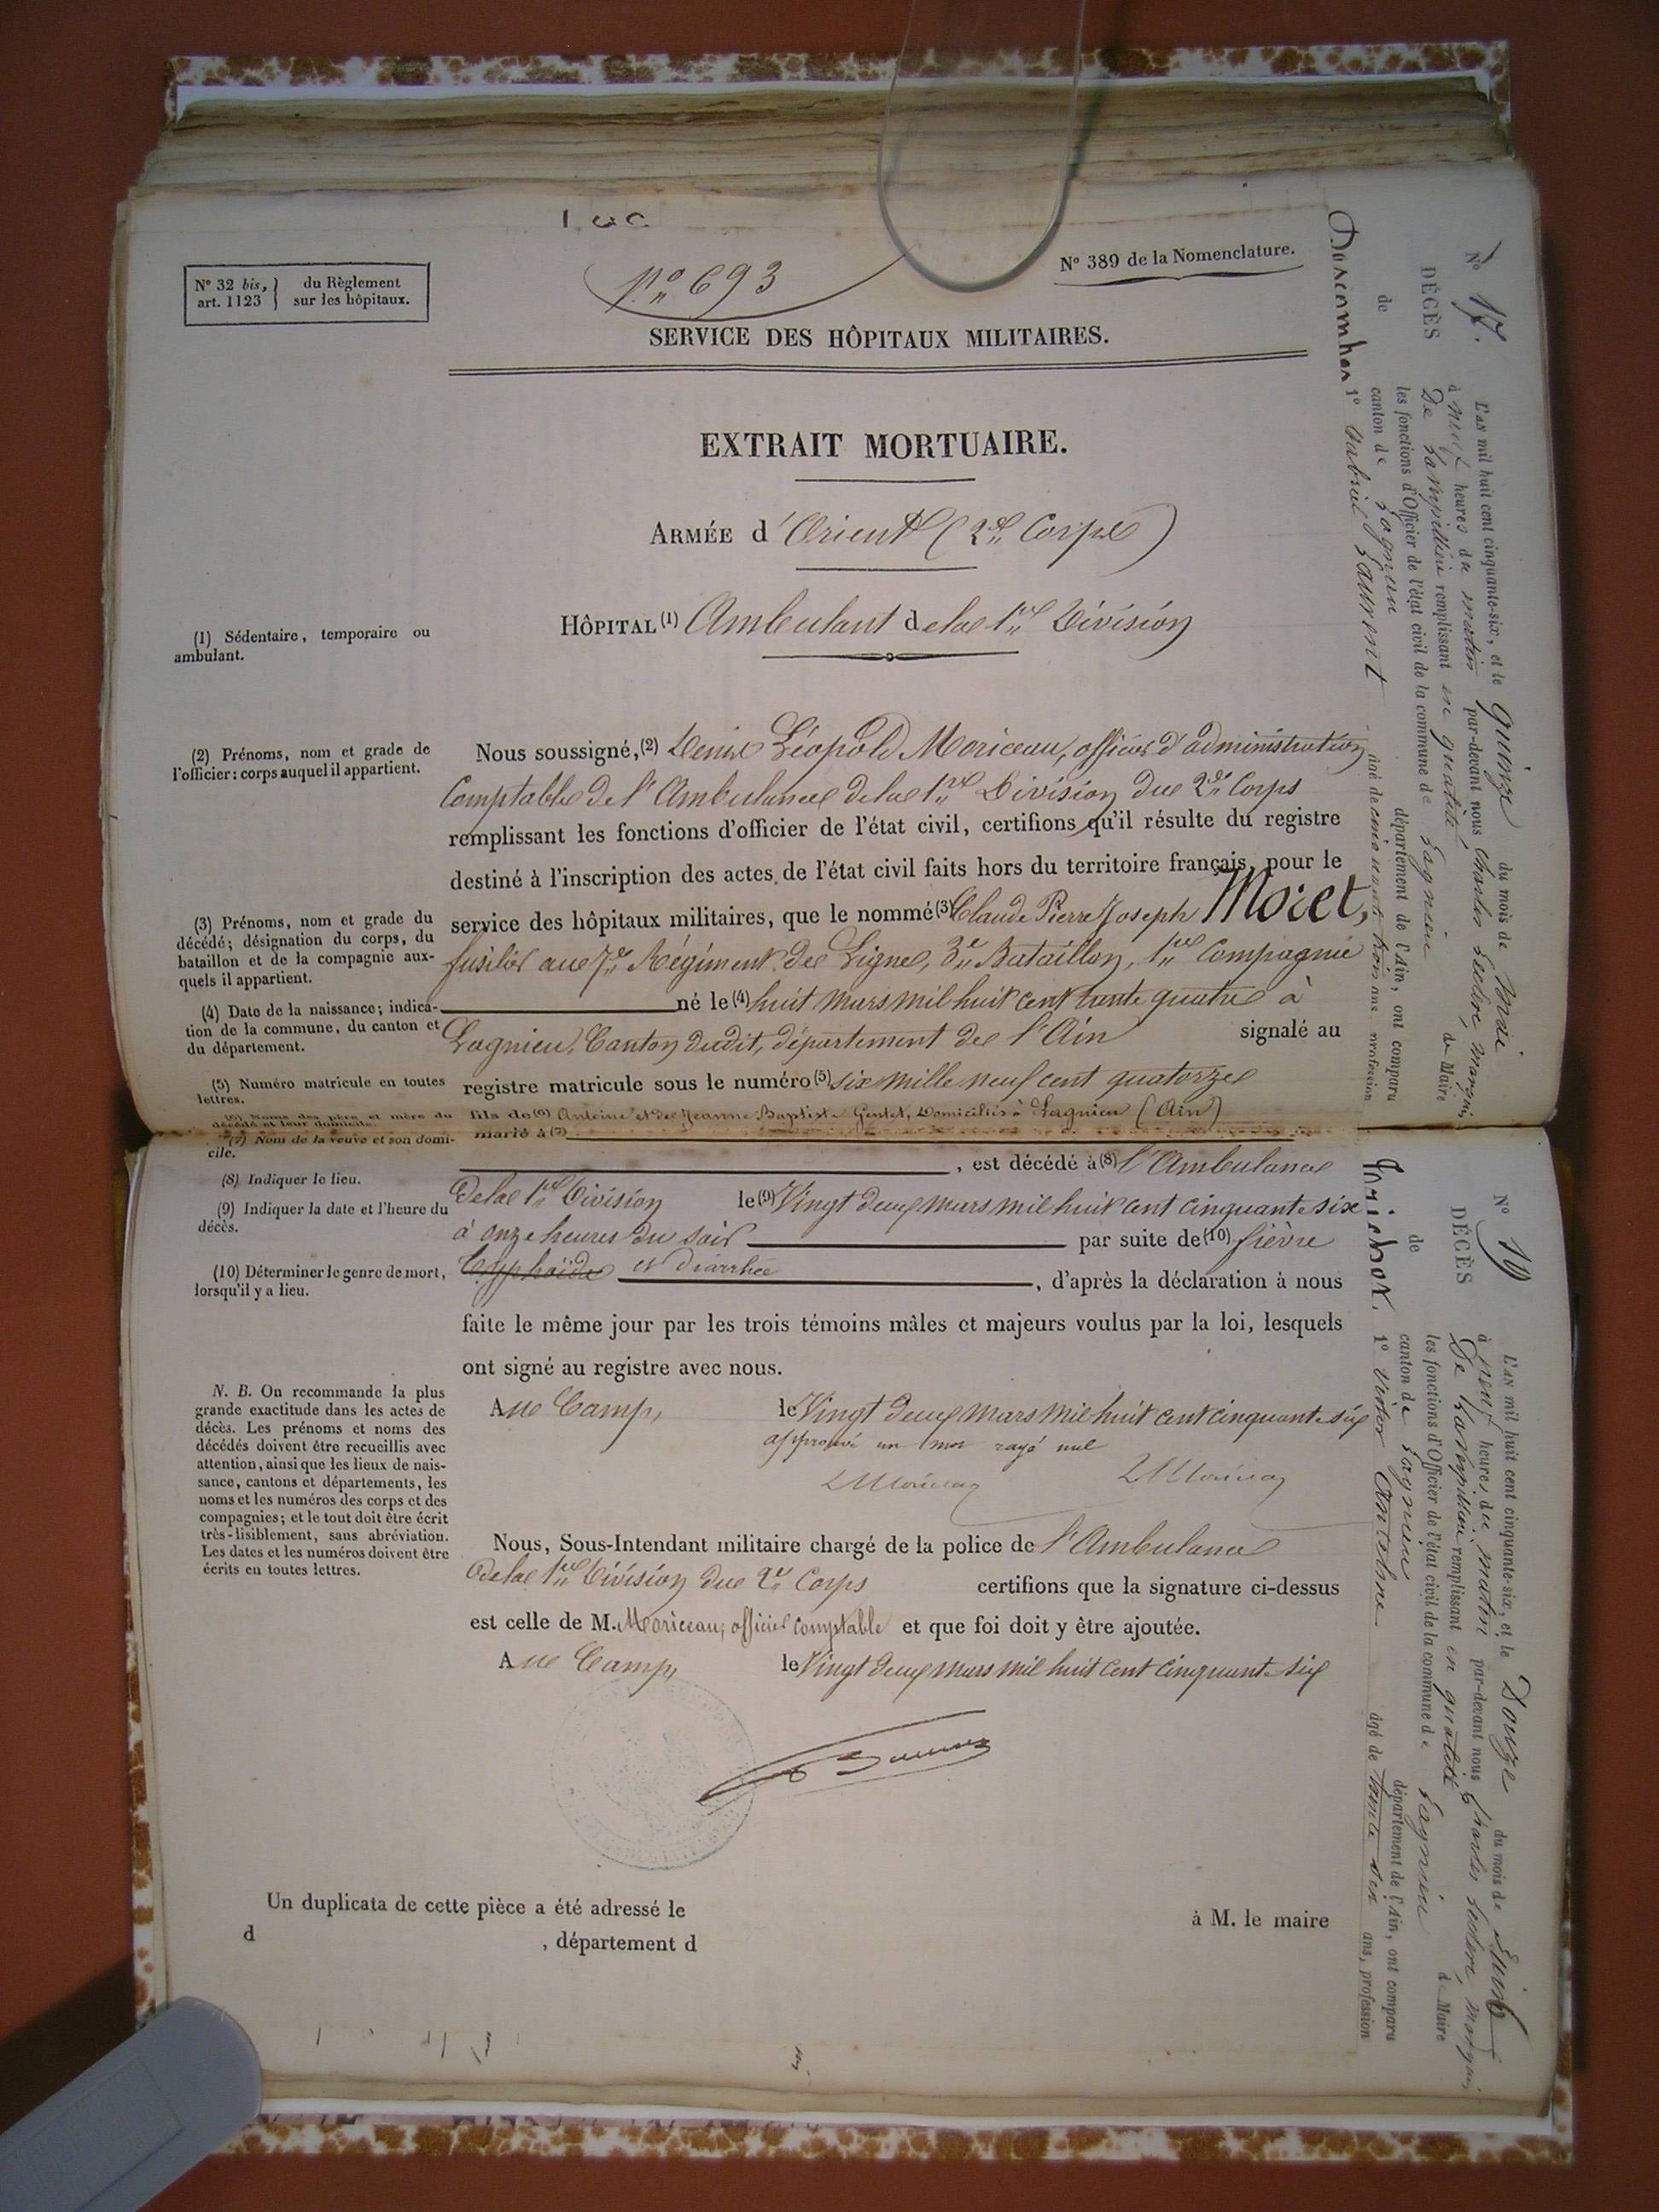 N° 32 bis, art. 1123 } du Règlement sur les hôpitaux.
N° 693
N° 389 de la Nomenclature.
SERVICE DES HÔPITAUX MILITAIRES.
EXTRAIT MORTUAIRE.
ARMÉE d'Orient (2e Corps)
HÔPITAL (1) Ambulant de la 1re Division
(1) Sédentaire, temporaire ou
ambulant.
(2) Prénoms, nom et grade de
l'officier : corps auquel il appartient.
Nous soussigné, (2) Denis Léopold Moriceau, officier d'administration
Comptable de l'Ambulance de la 1re Division du 2e Corps
remplissant les fonctions d'officier de l'état civil, certifions qu'il résulte du registre
destiné à l'inscription des actes de l'état civil faits hors du territoire français, pour le
(3) Prénoms, nom et grade du
décédé ; désignation du corps, du
bataillon et de la compagnie aux-
quels il appartient.
service des hôpitaux militaires, que le nommé (3) Claude Pierre Joseph Moret,
fusilier au 7e Régiment de Ligne, 3e Bataillon, 1re Compagnie
(4) Date de la naissance ; indica-
tion de la commune, du canton et
du département.
né le (4) huit mars mil huit cent trente quatre à
Lagnieu, Canton dudit, département de l'Ain signalé au
(5) Numéro matricule en toutes
lettres.
registre matricule sous le numéro (5) six mille neuf cent quatorze
(6) Noms des père et mère du
décédé et leur domicile.
fils de (6) Antoine et de Jeanne Baptiste Gentet, Domiciliés à Lagnieu (Ain)
(7) Nom de la veuve et son domi-
cile.
marié à (7)
(8) Indiquer le lieu.
, est décédé à (8) l'Ambulance
(9) Indiquer la date et l'heure du
décès.
de la 1re Division le (9) Vingt deux mars mil huit cent cinquante six
à onze heures du soir par suite de (10) fièvre
(10) Déterminer le genre de mort,
lorsqu'il y a lieu.
Typhoïde et diarrhée , d'après la déclaration à nous
faite le même jour par les trois témoins mâles et majeurs voulus par la loi, lesquels
ont signé au registre avec nous.
N. B. On recommande la plus
grande exactitude dans les actes de
décès. Les prénoms et noms des
décédés doivent être recueillis avec
attention, ainsi que les lieux de nais-
sance, cantons et départements, les
noms et les numéros des corps et des
compagnies ; et le tout doit être écrit
très-lisiblement, sans abréviation.
Les dates et les numéros doivent être
écrits en toutes lettres.
Au Camp, le Vingt deux mars mil huit cent cinquante six
approuvé un mot rayé nul
Nous, Sous-Intendant militaire chargé de la police de l'Ambulance
de la 1re Division du 2e Corps certifions que la signature ci-dessus
est celle de M. Moriceau, officier comptable et que foi doit y être ajoutée.
Au Camp, le Vingt deux mars mil huit cent cinquante six
Un duplicata de cette pièce a été adressé le à M. le maire
d , département d
N° 17.
DÉCÈS
de
L'an mil huit cent cinquante-six, et le quinze du mois de Mai
à neuf heures du matin par-devant nous Charles
remplissant en qualité de Maire
les fonctions d'Officier de l'état civil de la commune de Lagnieu
canton de Lagnieu département de l'Ain, ont comparu
1° Gabriel Laurent âgé de ans profession
N° 19
DÉCÈS
de
L'an mil huit cent cinquante-six, et le Douze du mois de Juin
à neuf heures du matin par-devant nous Charles
remplissant en qualité de Maire
les fonctions d'Officier de l'état civil de la commune de Lagnieu
canton de Lagnieu département de l'Ain, ont comparu
1° Victor Antelme âgé de trente six ans, profession